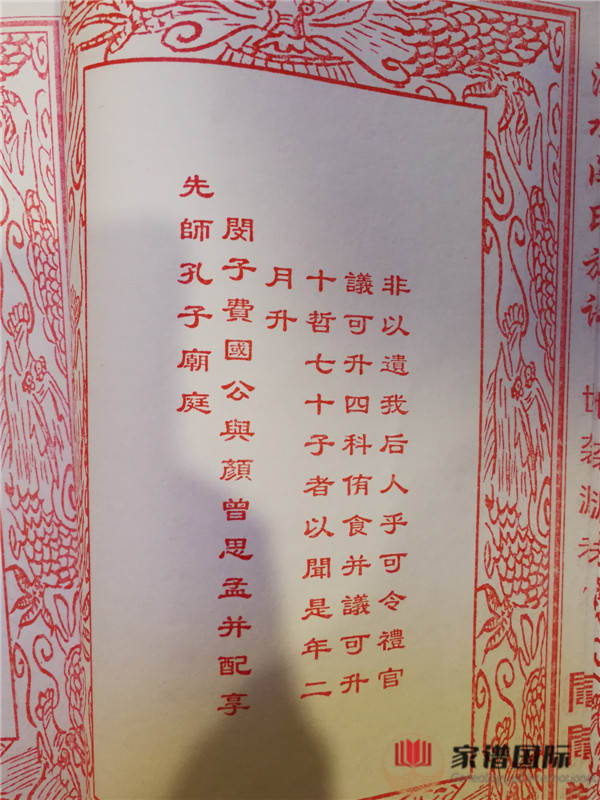 非以遺我后人乎可令禮官
議可升四科侑食并議可升
十哲七十子者以聞是年二
月升
閔子費國公與顏曾思孟并配享
先師孔子廟庭
家谱国际